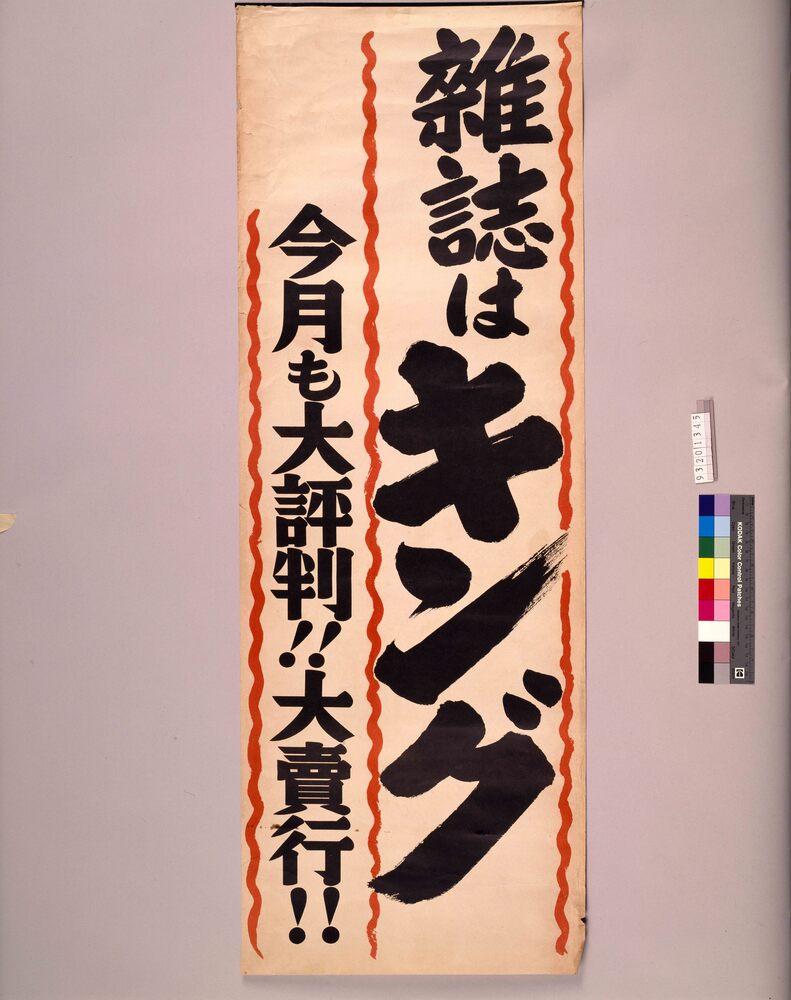 雑誌はキング
今月も大評判!!大賣行!!
93201345
KODAK Color Control Patches